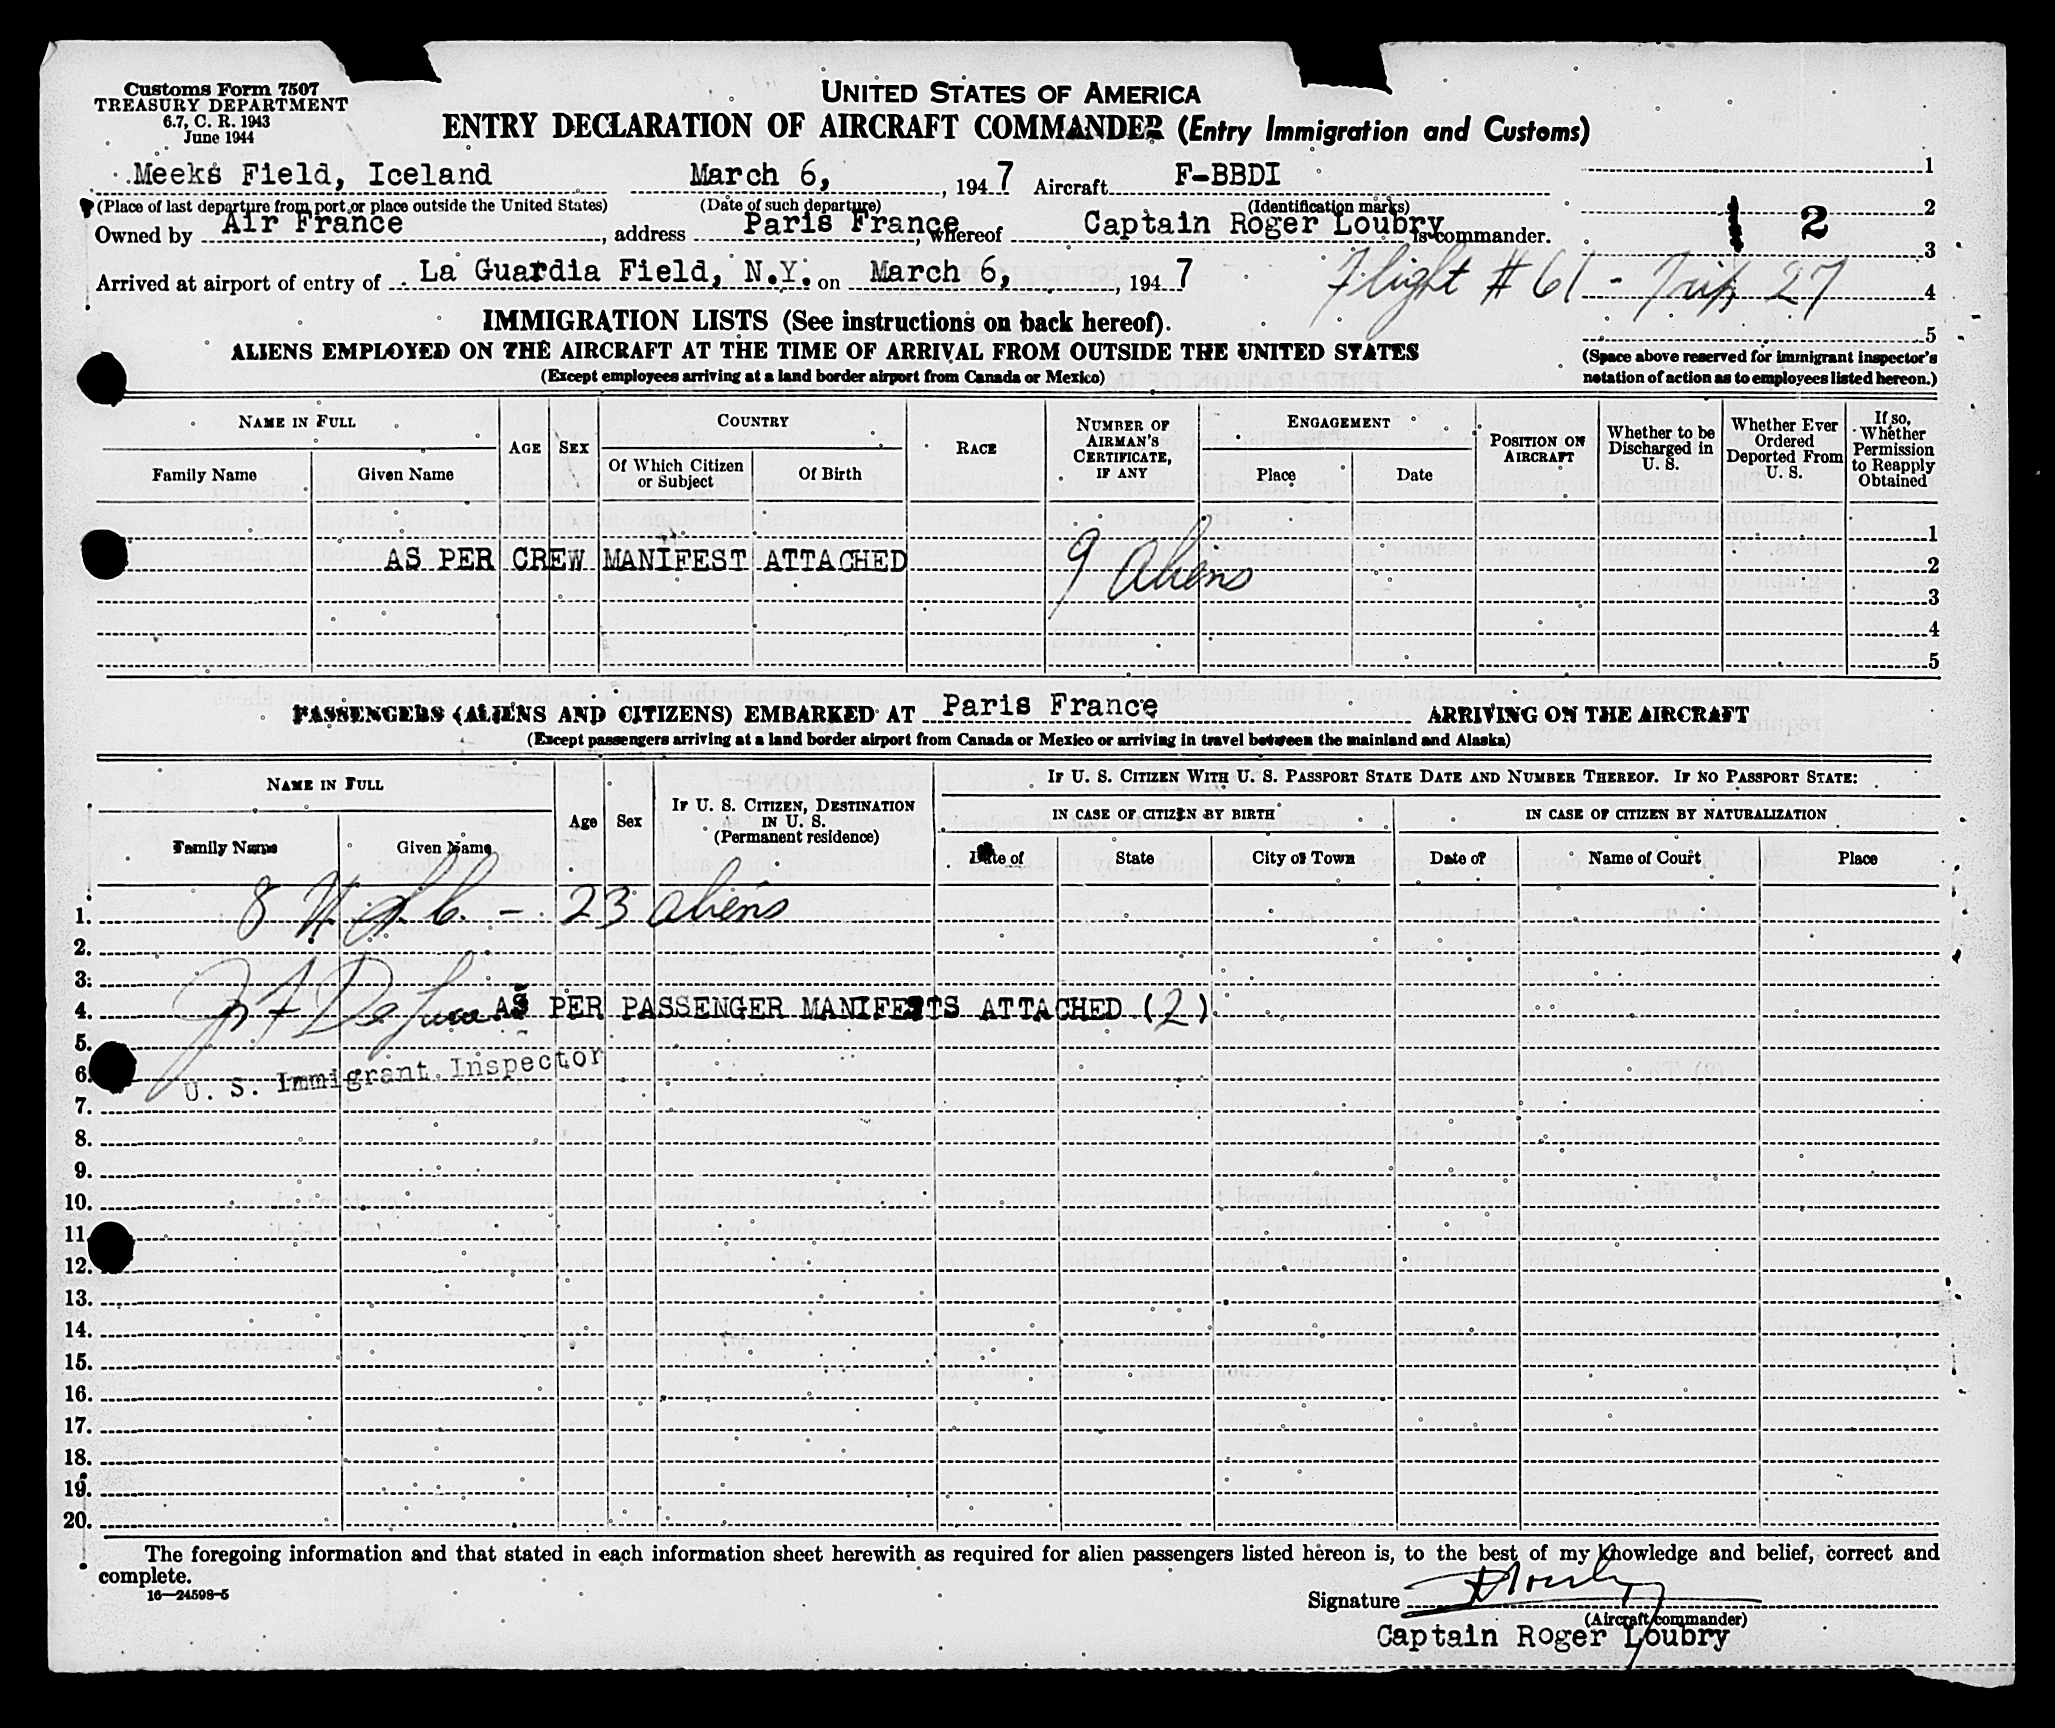 Customs Form 7507
TREASURY DEPARTMENT
6.7, C. R. 1943
June 1944
UNITED STATES OF AMERICA
ENTRY DECLARATION OF AIRCRAFT COMMANDER (Entry Immigration and Customs)
Meeks Field, Iceland March 6, , 1947 Aircraft F-BBDI
(Place of last departure from port or place outside the United States) (Date of such departure) (Identification marks)
Owned by Air France , address Paris France , whereof Captain Roger Loubry is commander.
Arrived at airport of entry of La Guardia Field, N.Y. on March 6, , 1947
1
2
2
3
Flight # 61 - Trip 27
4
5
(Space above reserved for immigrant inspector's
notation of action as to employees listed hereon.)
IMMIGRATION LISTS (See instructions on back hereof).
ALIENS EMPLOYED ON THE AIRCRAFT AT THE TIME OF ARRIVAL FROM OUTSIDE THE UNITED STATES
(Except employees arriving at a land border airport from Canada or Mexico)
NAME IN FULL
Family Name
Given Name
AGE
SEX
COUNTRY
Of Which Citizen
or Subject
Of Birth
RACE
NUMBER OF
AIRMAN'S
CERTIFICATE,
IF ANY
ENGAGEMENT
Place
Date
POSITION ON
AIRCRAFT
Whether to be
Discharged in
U. S.
Whether Ever
Ordered
Deported From
U. S.
If so,
Whether
Permission
to Reapply
Obtained
1
AS PER CREW MANIFEST ATTACHED 9 Aliens 2
3
4
5
PASSENGERS (ALIENS AND CITIZENS) EMBARKED AT Paris France ARRIVING ON THE AIRCRAFT
(Except passengers arriving at a land border airport from Canada or Mexico or arriving in travel between the mainland and Alaska)
NAME IN FULL
Family Name
Given Name
Age
Sex
IF U. S. CITIZEN, DESTINATION
IN U. S.
(Permanent residence)
IF U. S. CITIZEN WITH U. S. PASSPORT STATE DATE AND NUMBER THEREOF. IF NO PASSPORT STATE:
IN CASE OF CITIZEN BY BIRTH
Date of
State
City or Town
IN CASE OF CITIZEN BY NATURALIZATION
Date of
Name of Court
Place
1. 8 U.S.C. - 23 aliens
2.
3.
4. AS PER PASSENGER MANIFESTS ATTACHED (2)
5.
6. U. S. Immigrant Inspector
7.
8.
9.
10.
11.
12.
13.
14.
15.
16.
17.
18.
19.
20.
The foregoing information and that stated in each information sheet herewith as required for alien passengers listed hereon is, to the best of my knowledge and belief, correct and
complete.
16—24598-5
Signature
(Aircraft commander)
Captain Roger Loubry